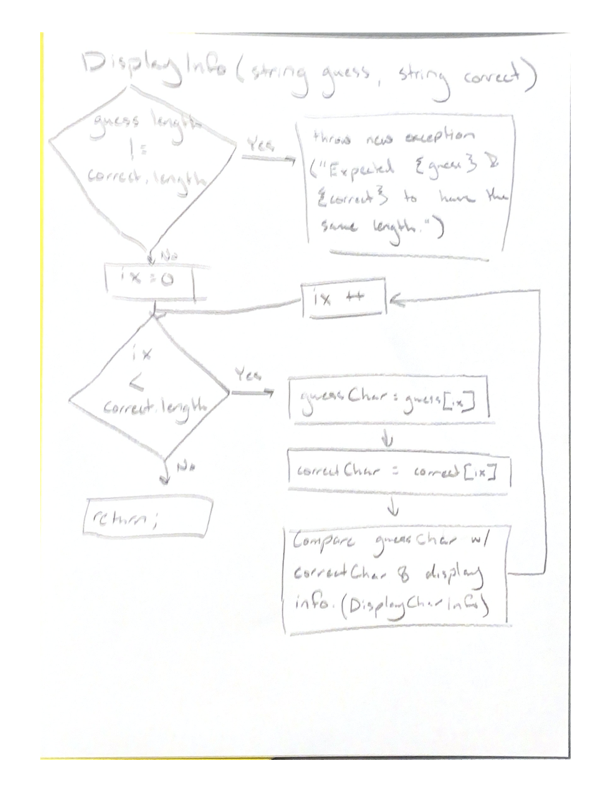 DisplayInfo (string guess, string correct)
guess length
!=
correct.length
Yes
throw new exception
("Expected {guess} &
{correct} to have the
same length.")
No
ix = 0
ix ++
ix
<
correct.length
Yes
guessChar = guess[ix]
correctChar = correct[ix]
No
return;
Compare guessChar w/
correctChar & display
info. (DisplayCharInfo)